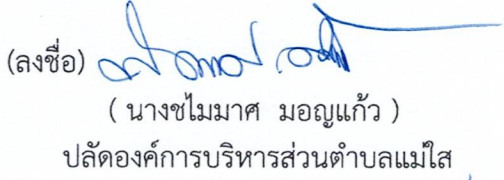 (ลงชื่อ)
( นางชไมมาศ มอญแก้ว )
ปลัดองค์การบริหารส่วนตำบลแม่ใส